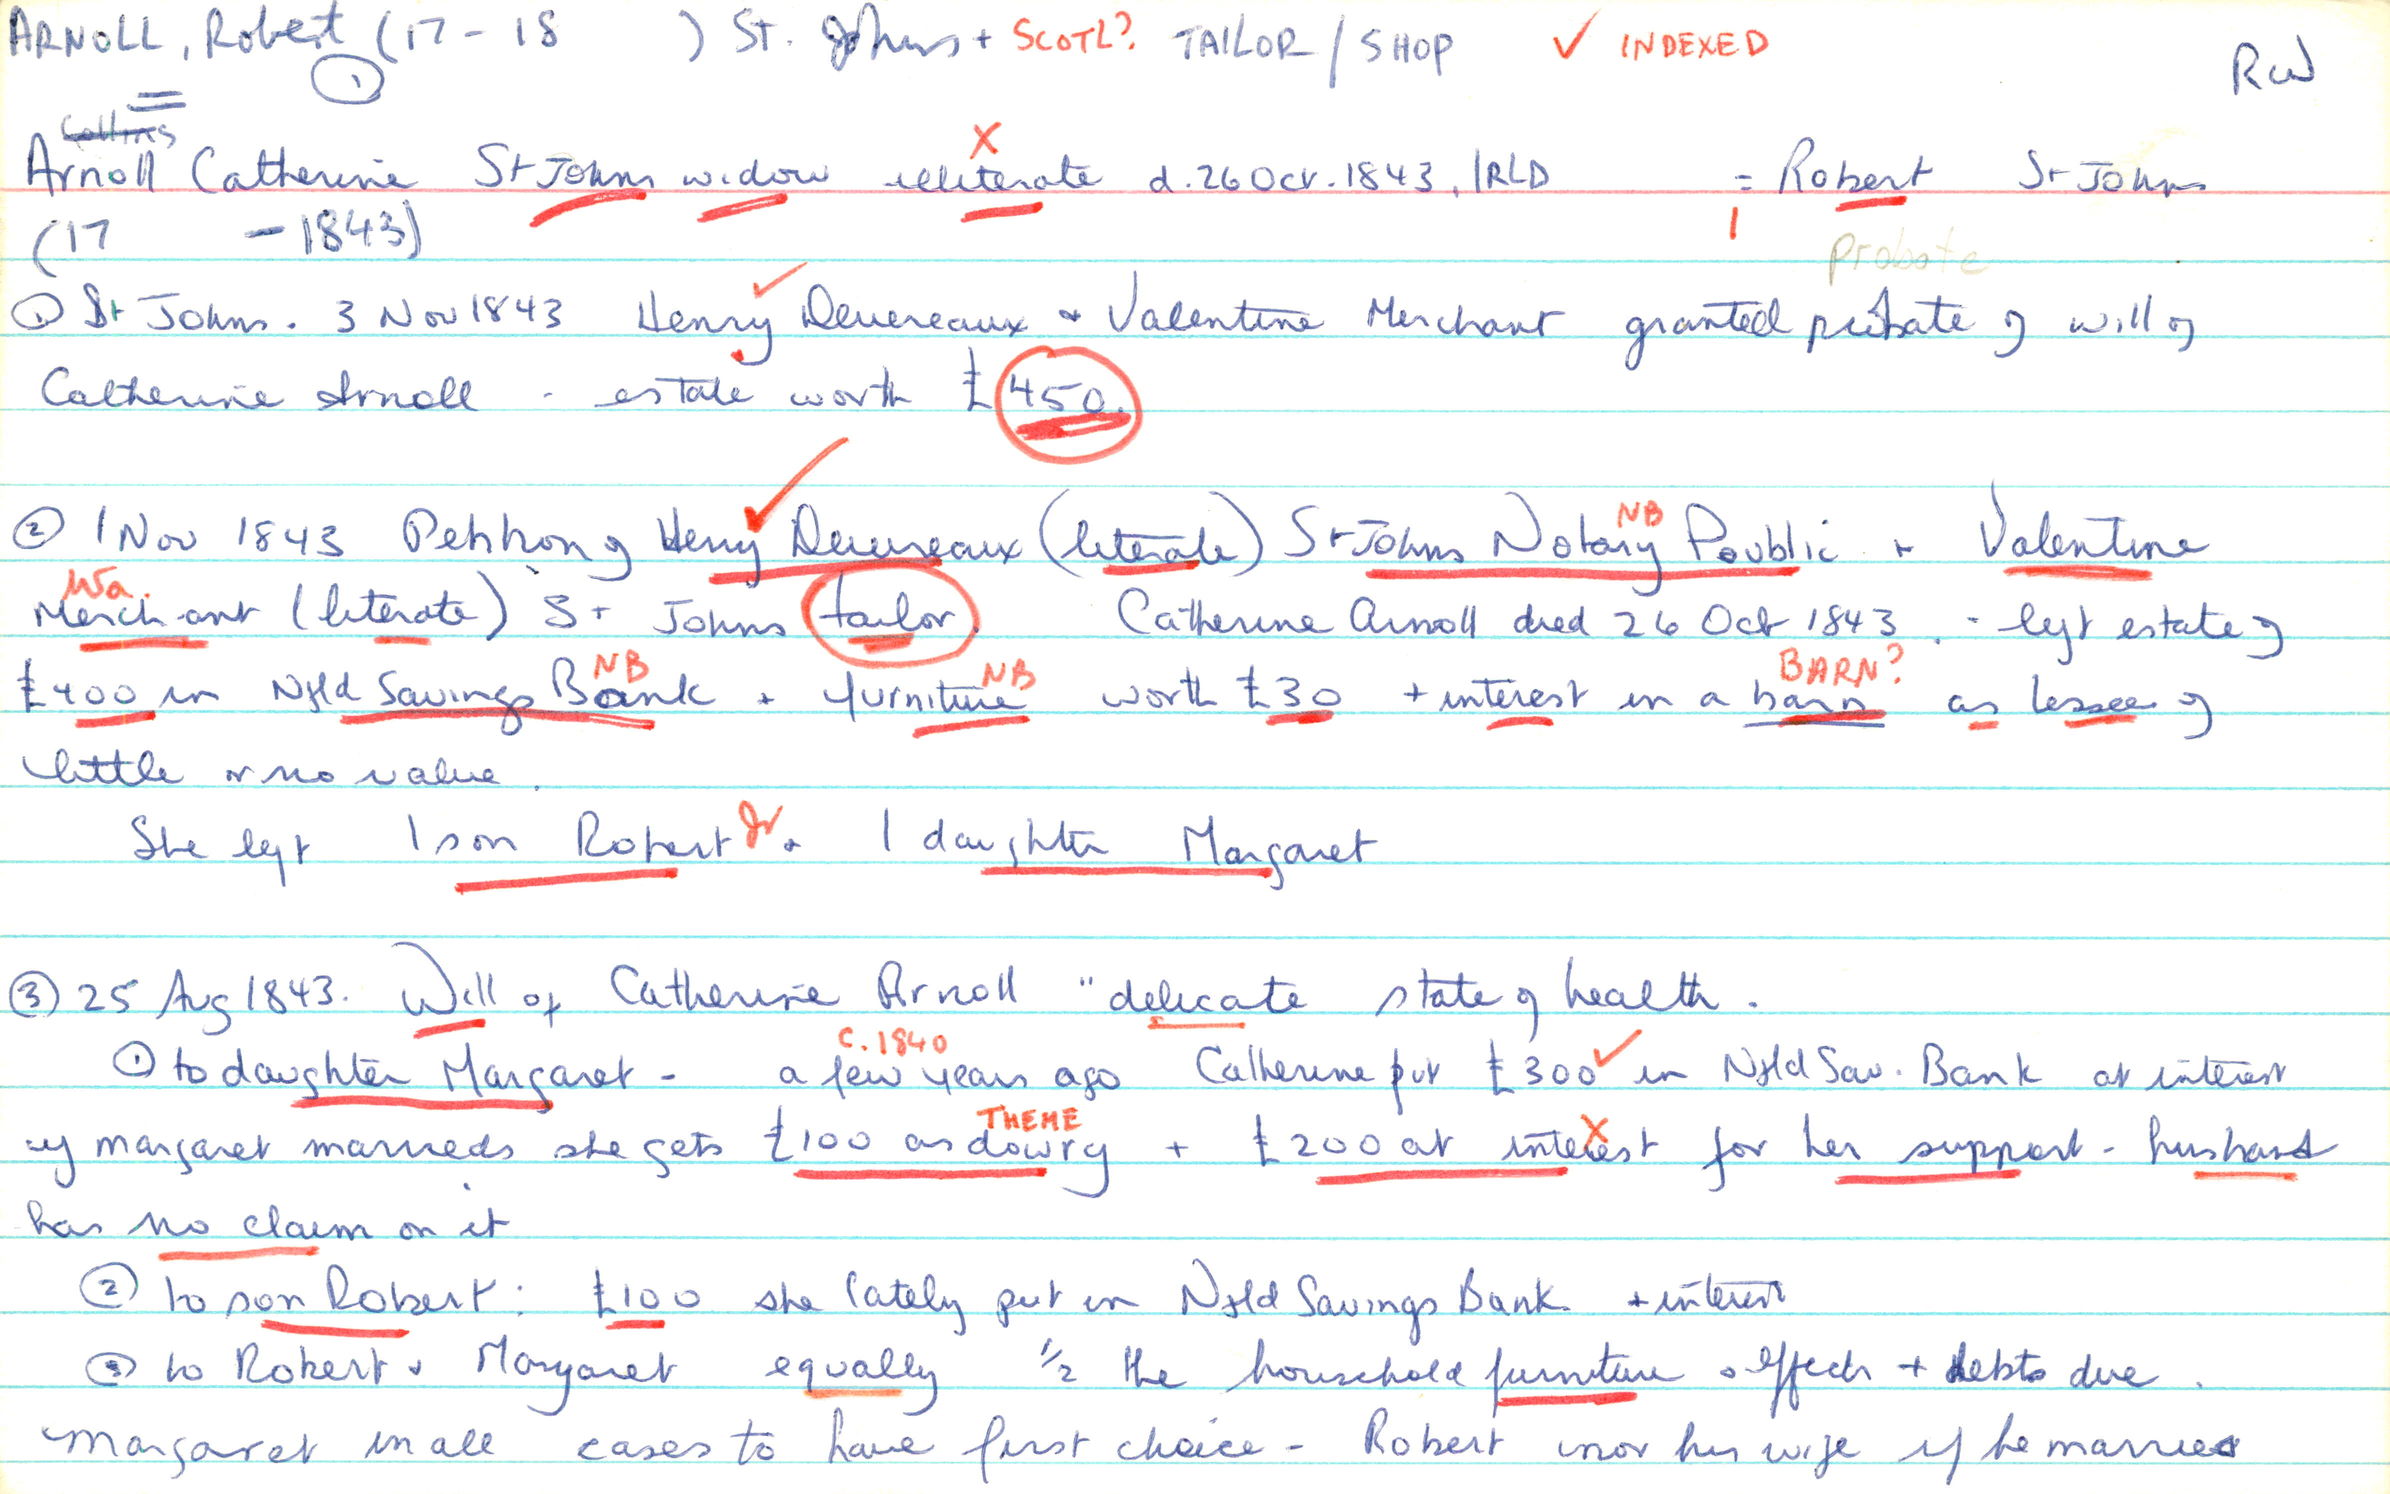 ARNOLL, Robert (17 - 18 ) St. Johns + SCOTL? TAILOR / SHOP ✓ INDEXED
① RW
Collins X
Arnoll Catherine St Johns widow illiterate d. 26 Oct. 1843, IRLD = Robert St Johns
(17 - 1843) 1 probate
① St Johns. 3 Nov 1843 Henry Devereaux + Valentine Merchant granted probate of will of
Catherine Arnoll - estate worth £450.
② 1 Nov 1843 Petition of Henry Devereaux (literate) St Johns Notary Public + Valentine
NB
Wa.
Merchant (literate) St Johns tailor. Catherine Arnoll died 26 Oct 1843. - left estate of
NB NB BARN?
£400 in Nfld Savings Bank + furniture worth £30 + interest in a barn as lessee of
little or no value.
She left 1 son Robert Jr + 1 daughter Margaret
③ 25 Aug 1843. Will of Catherine Arnoll "delicate state of health.
c. 1840
① to daughter Margaret - a few years ago Catherine put £300 ✓ in Nfld Sav. Bank at interest
THEME X
if margaret marrieds she gets £100 as dowry + £200 at interest for her support - husband
has no claim on it
② to son Robert: £100 she lately put in Nfld Savings Bank. + interest
③ to Robert + Margaret equally 1/2 the household furniture + effects + debts due.
Margaret in all cases to have first choice - Robert nor his wife if he married